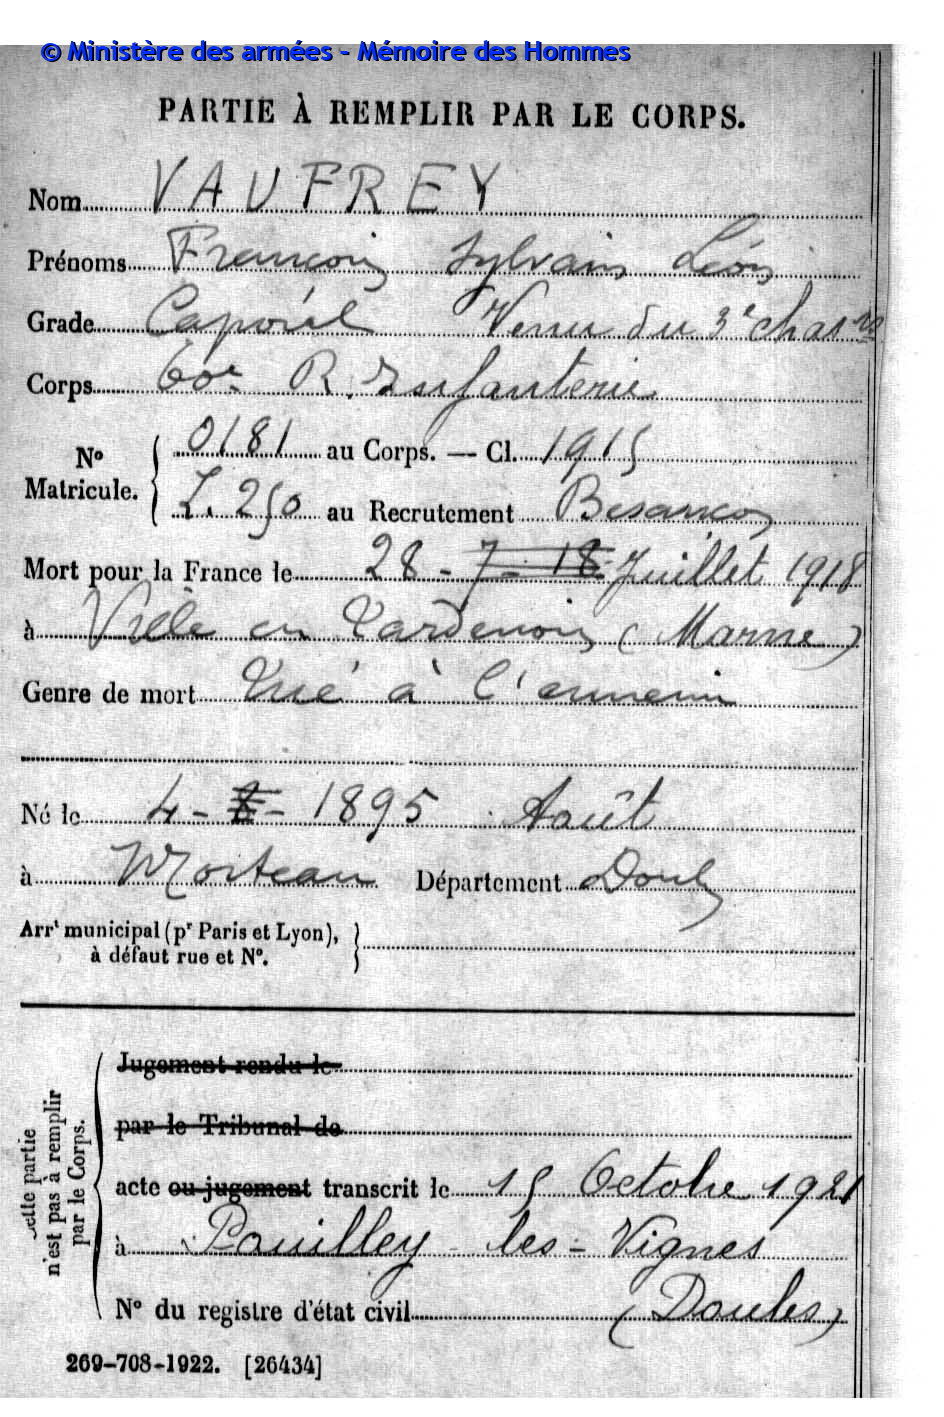 © Ministère des armées - Mémoire des Hommes
PARTIE À REMPLIR PAR LE CORPS.
Nom VAUFREY
Prénoms François Sylvain Léon
Grade Caporal Venu du 3e chas rs
Corps 60e R. Infanterie
No Matricule. { 0181 au Corps. — Cl. 1915
L. 250 au Recrutement Besançon
Mort pour la France le 28 - 7 - 18 Juillet 1918
à Ville en Tardenois (Marne)
Genre de mort Tué à l'ennemi
Né le 4 - 8 - 1895 Août
à Morteau Département Doubs
Arrt municipal (pr Paris et Lyon), à défaut rue et No. }
Cette partie n'est pas à remplir par le Corps.
Jugement rendu le
par le Tribunal de
acte ou jugement transcrit le 15 Octobre 1921
à Pouilley - les - Vignes
No du registre d'état civil (Doubs)
269-708-1922. [26434]